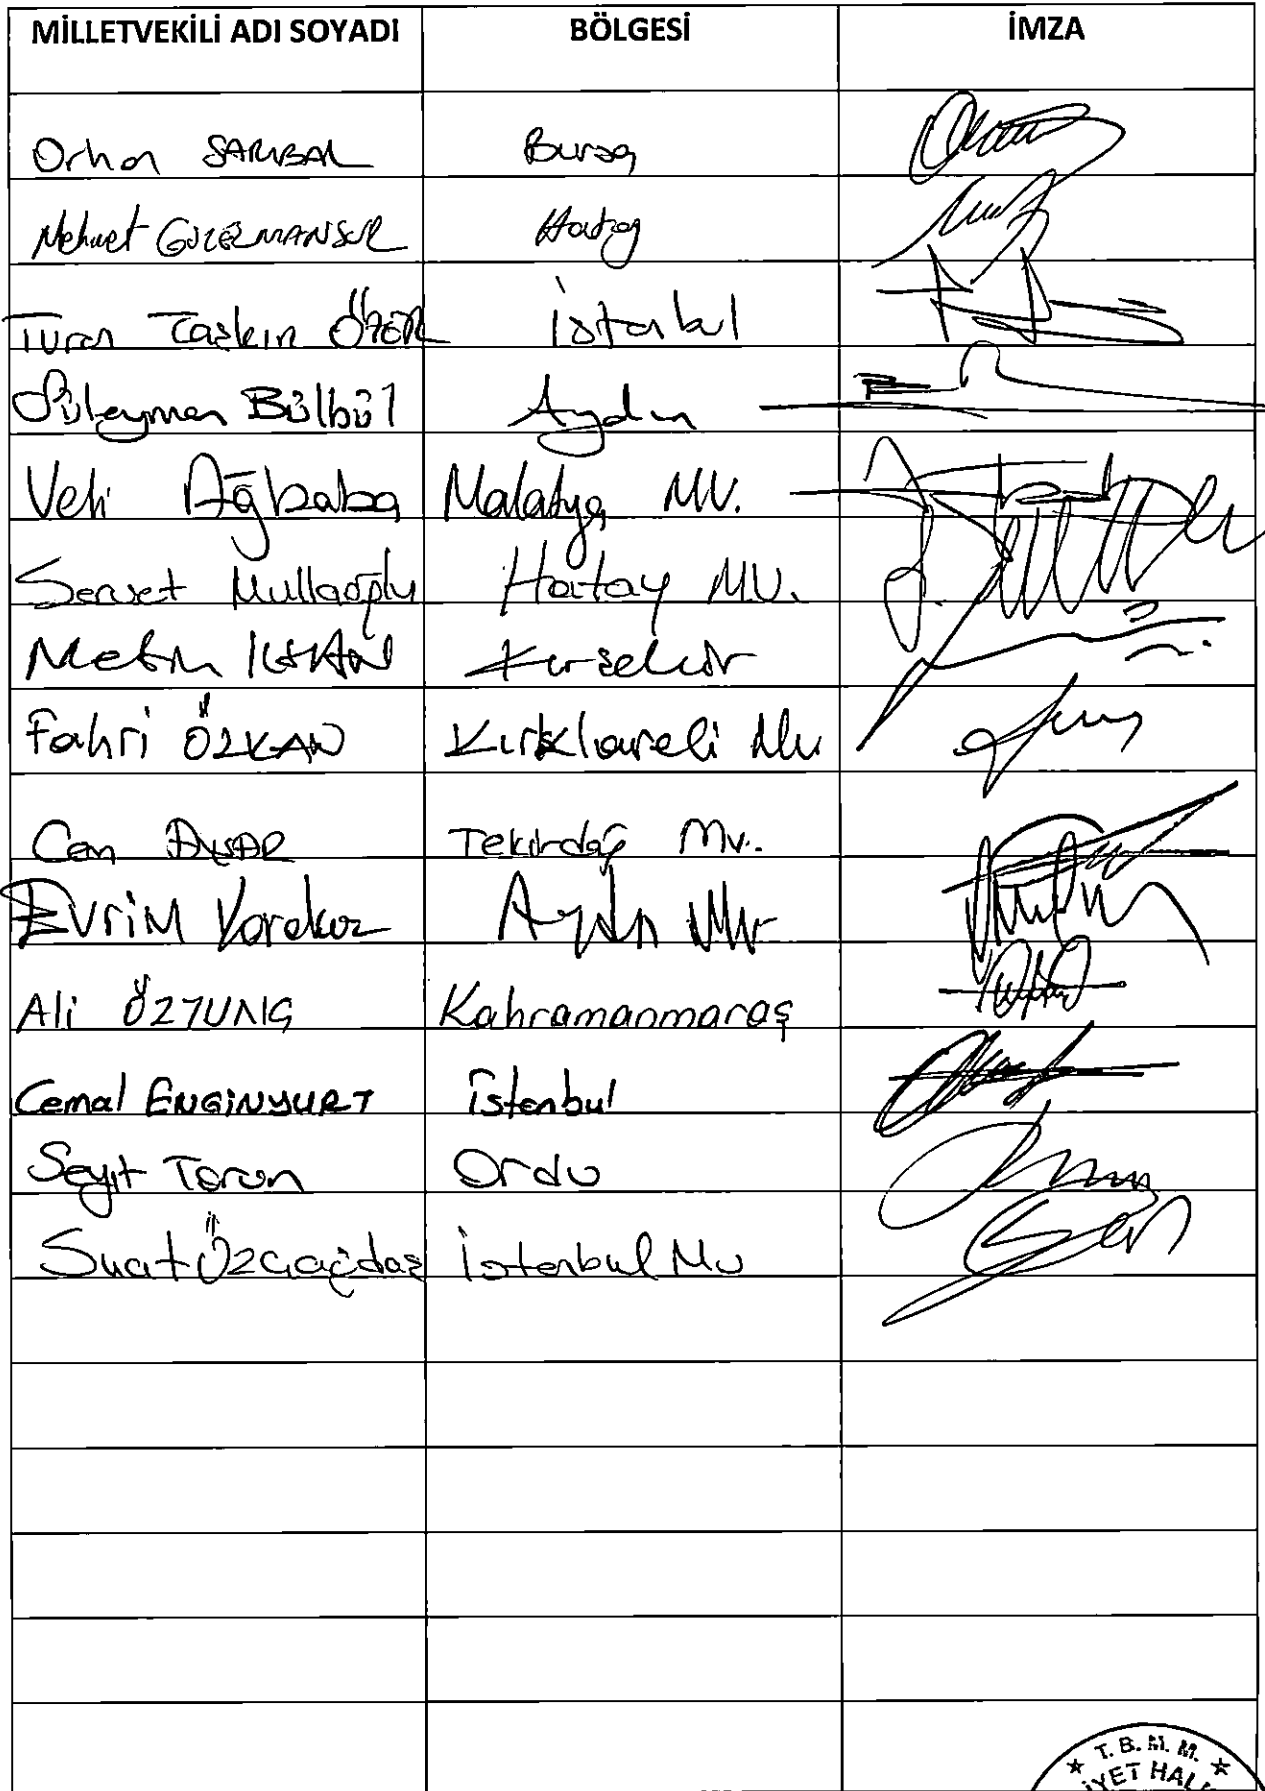 MİLLETVEKİLİ ADI SOYADI BÖLGESİ İMZA
Orhan SARIBAL Bursa
Mehmet GÜZELMANSUR Hatay
Turan Taşkın ÖZER İstanbul
Süleyman Bülbül Aydın
Veli Ağbaba Malatya MV.
Servet Mullaoğlu Hatay M.V.
Metin İLHAN Kırşehir
Fahri ÖZKAN Kırklareli Mv
Cem AVŞAR Tekirdağ Mv.
EVRİM Karakoz Aydın Mv.
Ali ÖZTUNÇ Kahramanmaraş
Cemal ENGİNYURT İstanbul
Seyit Torun Ordu
Suat Özçağdaş İstanbul Mv
T. B. M. M.
İYET HAL